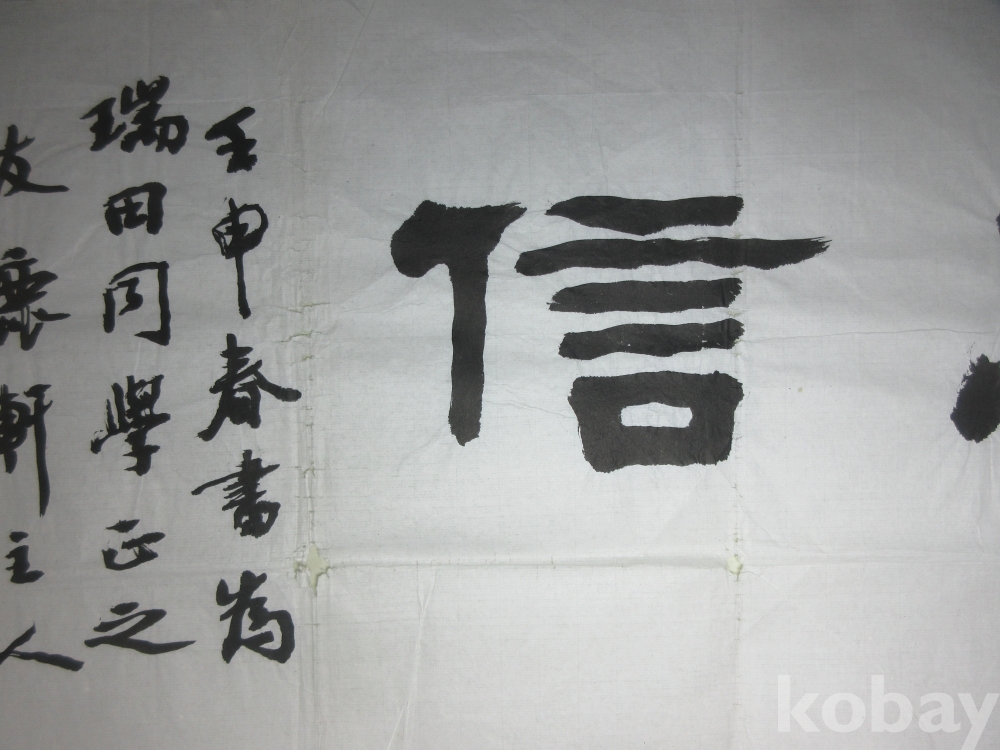 信
壬申春書為
瑞田同學正之
友鹿軒主人
kobay